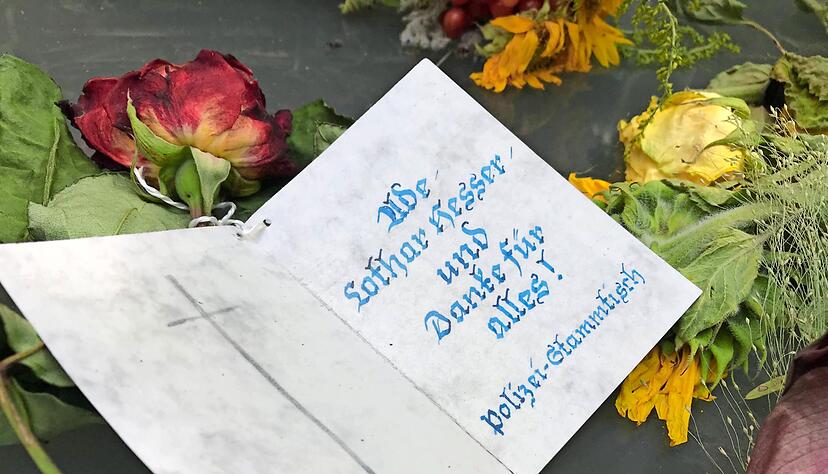 Ade,
Lothar Hesser,
und
Danke für
alles!
Polizei-Stammtisch